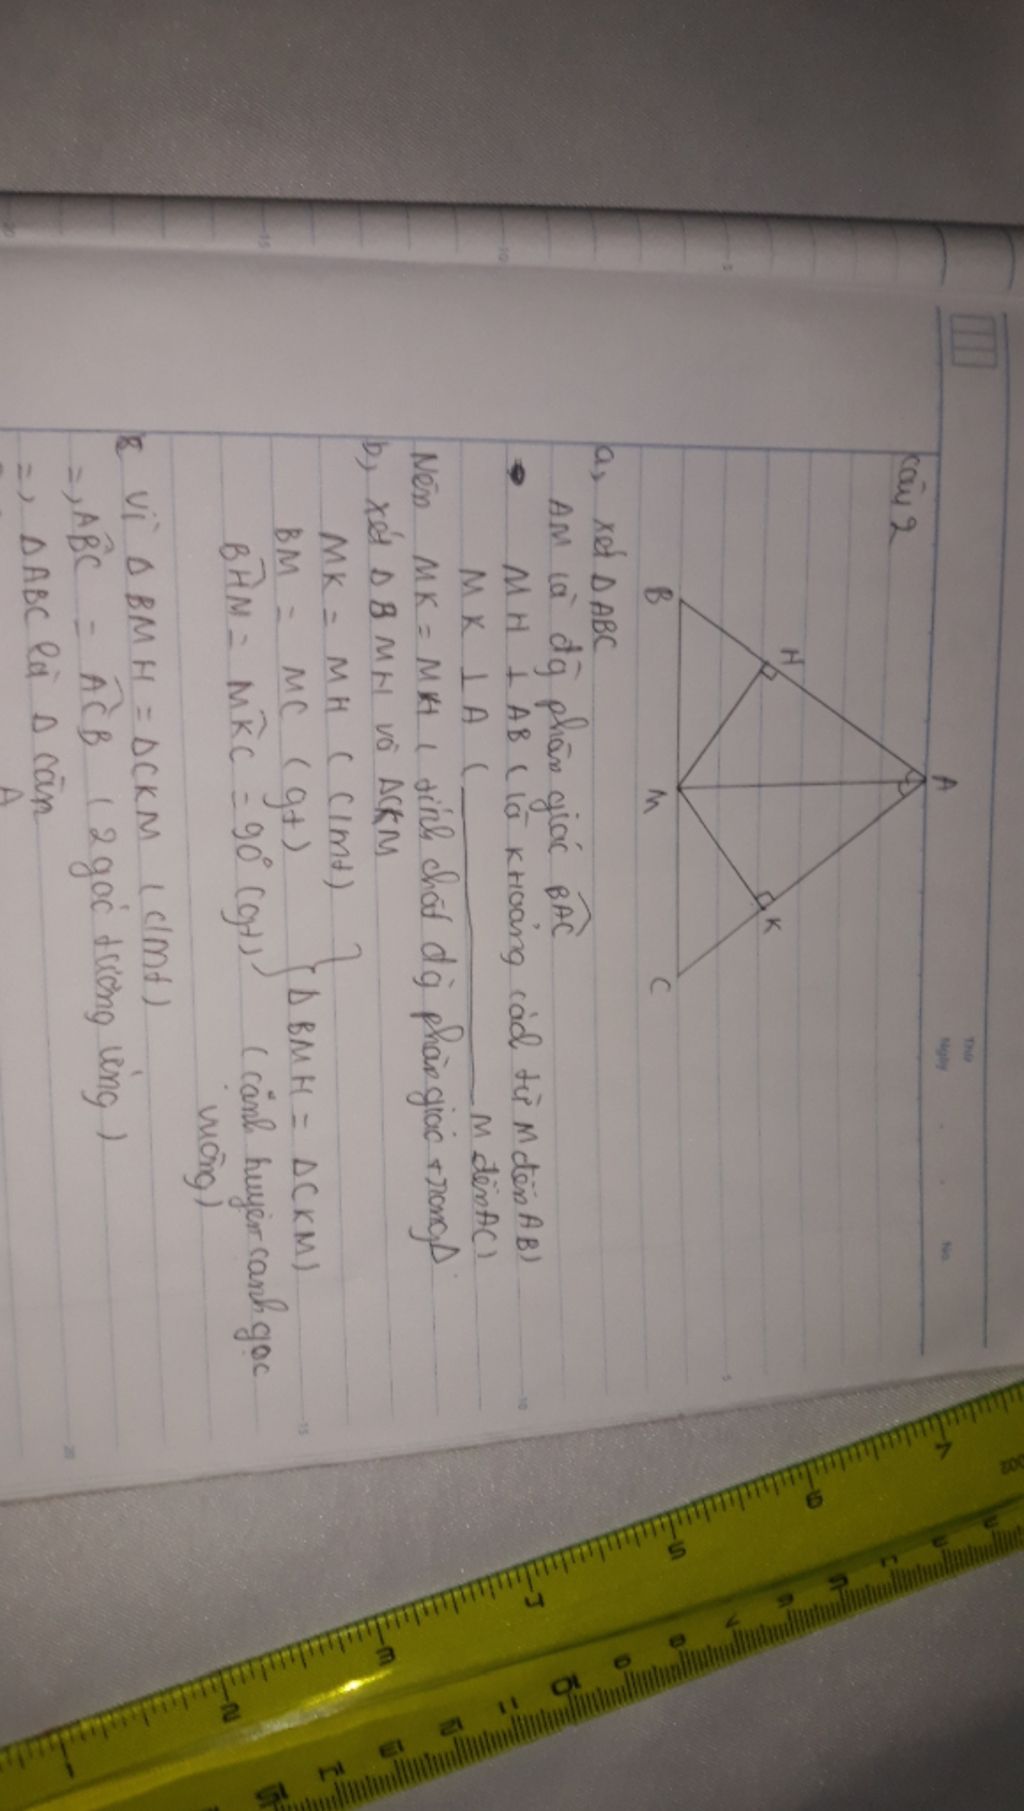 Thứ
Ngày . . No.
Câu 2
A
H
K
B M C
a, xét Δ ABC
AM là đg phân giác BAC
MH ⊥ AB ( là khoảng cách từ M đến AB)
MK ⊥ A ( M đến AC)
Nên MK = MH ( tính chất đg phân giác trong Δ
b, xét Δ BMH và ΔCKM
MK = MH ( cmt)
BM = MC ( gt) } Δ BMH = ΔCKM)
BHM = MKC = 90° (gt) ( cạnh huyền cạnh góc
vuông)
vì Δ BMH = ΔCKM ( cmt)
=, ABC = ACB ( 2 góc tương ứng )
=, Δ ABC là Δ cân
A
5
10
15
20
5
10
15
20
1
2
3
4
5
6
7